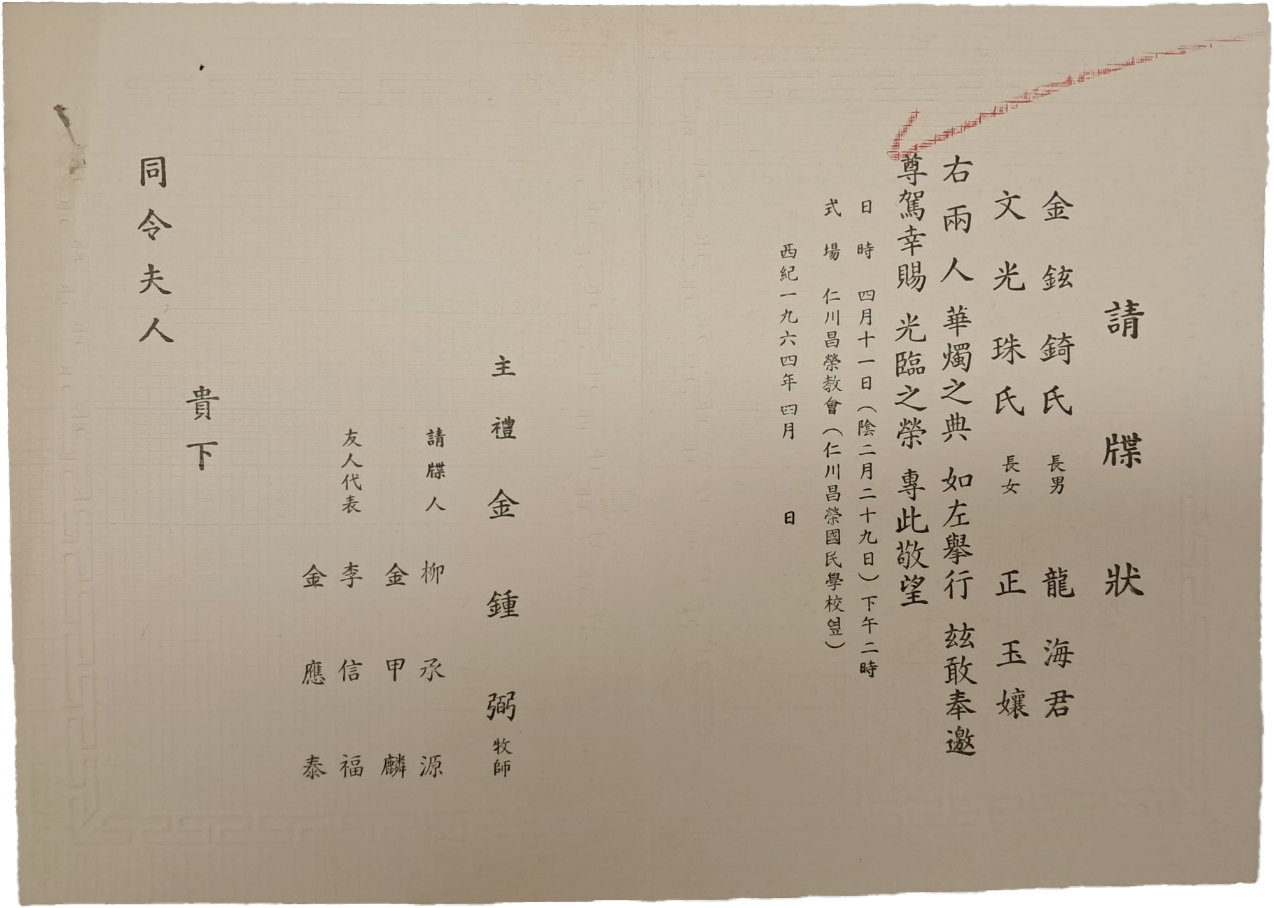 請牒狀
金鉉錡氏 長男 龍海君
文光珠氏 長女 正玉孃
右兩人 華燭之典 如左擧行 玆敢奉邀
尊駕幸賜 光臨之榮 專此敬望
日時 四月十一日(陰二月二十九日)下午二時
式場 仁川昌榮教會(仁川昌榮國民學校옆)
西紀一九六四年四月 日
主禮 金鍾弼 牧師
請牒人 柳承源
金甲麟
友人代表 李信福
金應泰
貴下
同令夫人